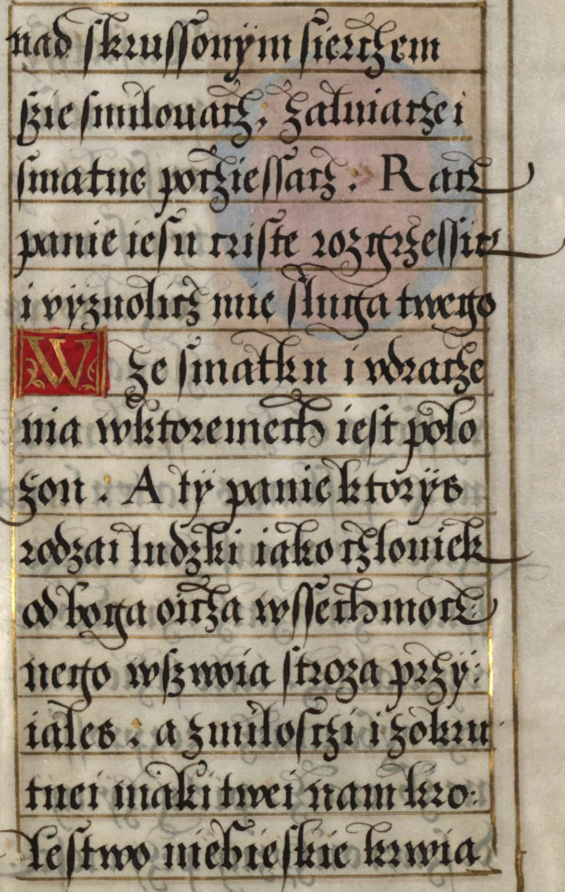 nad skrussonÿm sierczem
szie smilouacz, zaluiacze i
smatne pocziessacz. Racz
panie iesu criste rozgrzessic
i vÿzuolicz mie sluga twego
W ze smatku i vdrącze
nia wktoremech iest polo
zon. A tÿ panie ktorÿs
rodzai ludzki iako czlouiek
od boga oicza wssechmocz
nego wszwoia stroza przÿ:
iales. a zmilosczi i zokru
tnei maki twei nam kro:
lestwo niebieskie krwia